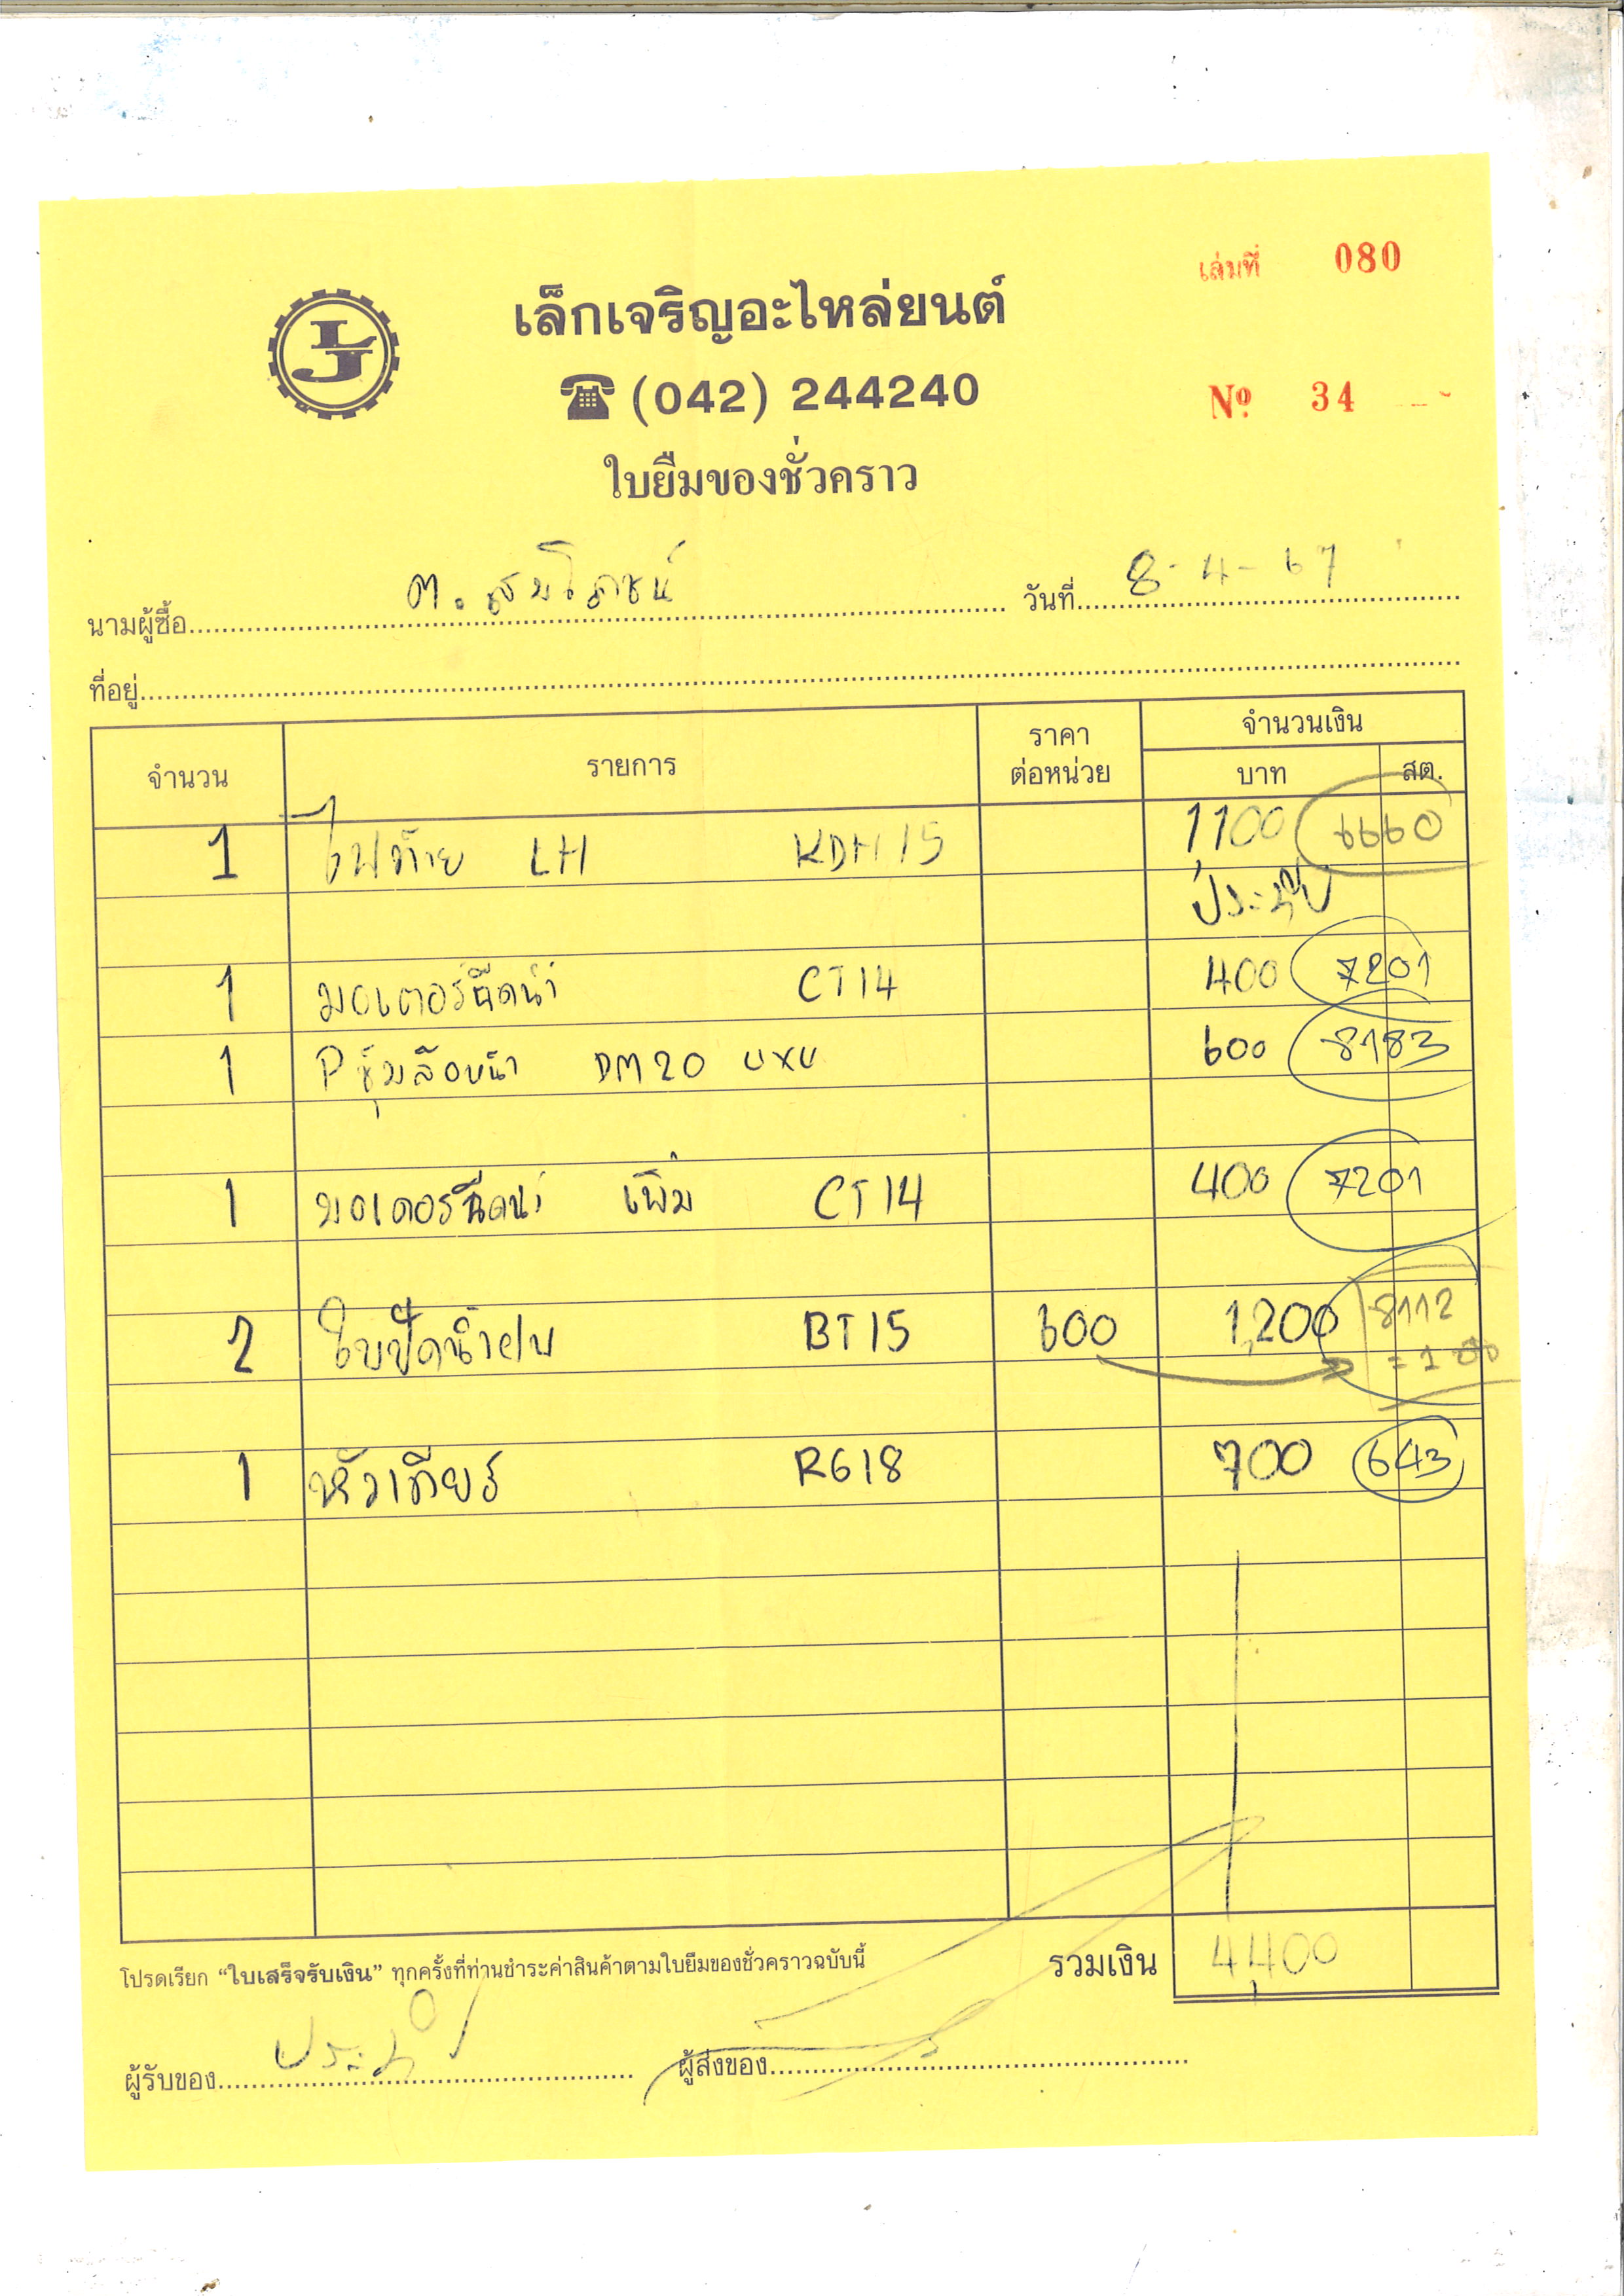 เล่มที่ 080
LJ
เล็กเจริญอะไหล่ยนต์
☎ (042) 244240
Nº 34
ใบยืมของชั่วคราว
นามผู้ซื้อ ต. สมโภชน์ วันที่ 8-4-67
ที่อยู่
จำนวน รายการ ราคาต่อหน่วย จำนวนเงิน
บาท สต.
1 ไฟท้าย LH KDH15 1,100 6660
1 มอเตอร์ฉีดน้ำ CT14 400 7201
1 Pซุ้มล้อหน้า DM20 UXU 600 8183
1 มอเตอร์ฉีดน้ำ เพิ่ม CT14 400 7201
2 ใบปัดน้ำฝน BT15 600 1,200 8112
= 1
1 หัวเกียร์ RG18 700 643
โปรดเรียก “ใบเสร็จรับเงิน” ทุกครั้งที่ท่านชำระค่าสินค้าตามใบยืมของชั่วคราวฉบับนี้ รวมเงิน 4,400
ผู้รับของ ผู้ส่งของ